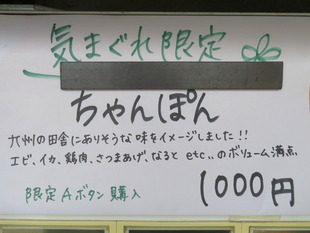 気まぐれ限定
ちゃんぽん
九州の田舎にありそうな味をイメージしました!!
エビ、イカ、鶏肉、さつまあげ、なると etc、、のボリューム満点
限定 Aボタン 購入
1000円